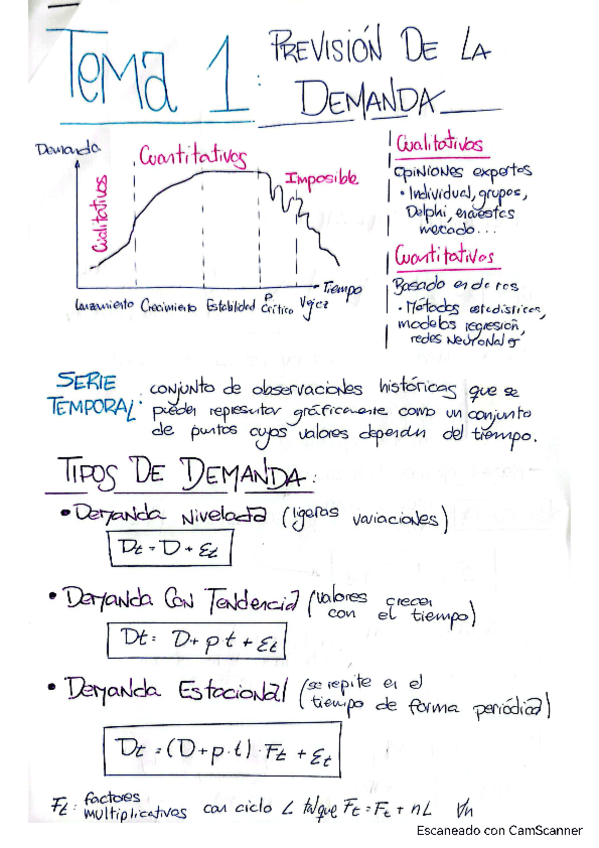 Tema 1: PREVISIÓN DE LA
DEMANDA
Demanda
Cuantitativos
Cualitativos
Imposible
Tiempo
Lanzamiento Crecimiento Estabilidad P Crítico Vejez
Cualitativos
Opiniones expertos
• Individual, grupos,
Delphi, encuestas
mercado...
Cuantitativos
Basado en datos
• Métodos estadísticos,
modelos regresión,
redes neuronales
SERIE TEMPORAL: conjunto de observaciones históricas que se
pueden representar gráficamente como un conjunto
de puntos cuyos valores dependen del tiempo.
TIPOS DE DEMANDA:
• Demanda Nivelada (ligeras variaciones)
Dt = D + Et
• Demanda Con Tendencia (valores crecen
con el tiempo)
Dt = D + p t + Et
• Demanda Estacional (se repite en el
tiempo de forma periódica)
Dt = (D + p·t)·Ft + Et
Ft: factores multiplicativos con ciclo L tal que Ft = Ft + nL ∀n
Escaneado con CamScanner